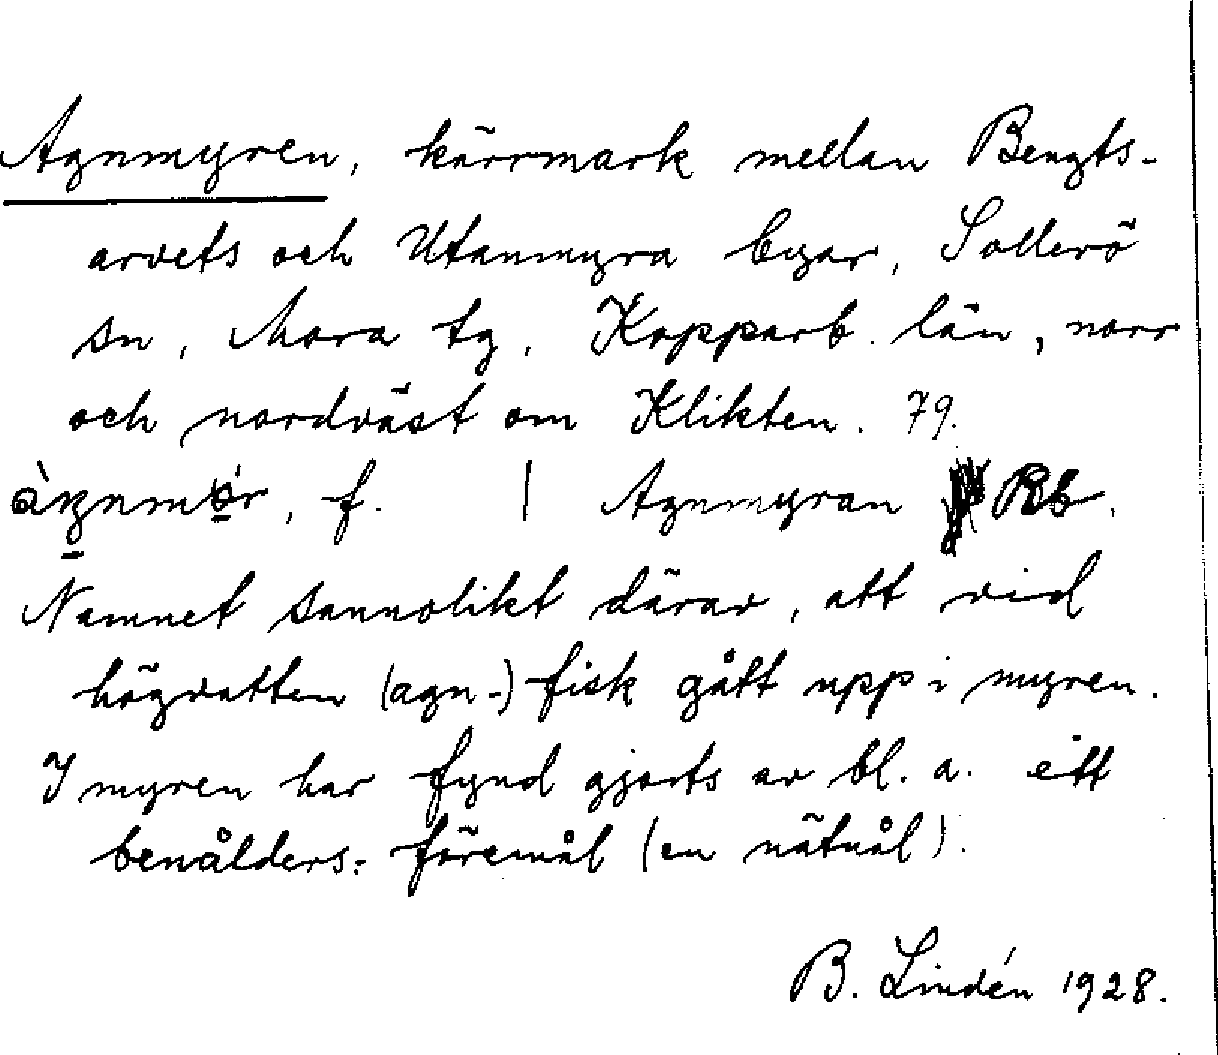 Agnmyren, kärrmark mellan Bengts-
arvets och Utanmyra byar, Sollerö
sn, Mora tg, Kopparb. län, norr
och nordväst om Klikten. 79.
f. | Agnmyran Rb.
Namnet sannolikt därav, att vid
högvatten (agn-) fisk gått upp i myren.
I myren har fynd gjorts av bl. a. ett
benålders-föremål (en nätnål).
B. Lindén 1928.